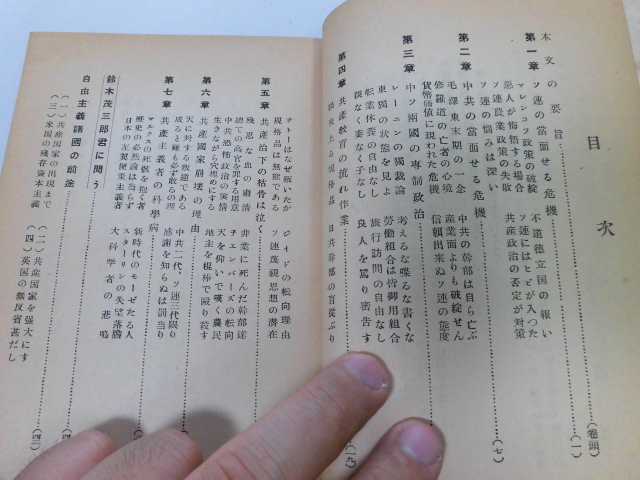 目次
本文の要旨……(巻頭)
第一章 ソ連の当面せる危機……(一)
マレンコフ政策の破綻 不道徳立国の報い
惡人が悔悟する場合 ソ連にはヒビが入つた
ソ連農業政策の失敗 共産政治の否定が対策
ソ連の悩みは深い
第二章 中共の当面せる危機……(七)
毛澤東末期の一念 中共の幹部は自ら亡ぶ
修羅道の亡者の心境 産業面よりも破綻せん
貨幣価値に現われた危機 信頼出来ぬソ連の態度
第三章 中ソ兩國の專制政治
レーニンの獨裁論 考えるな喋るな書くな
東獨の状態を見よ 労働組合は皆御用組合
転業休養の自由なし 旅行訪問の自由なし
親なく妻なく子なし 良人を罵り密告す
第四章 共産教育の流れ作業……(一九)
規格品 日共幹部の盲從ぶり
チトーはなぜ叛いたか ジイドの転向理由
規格品は無能である ソ連蔑視思想の潜在
第五章 共產治下の枯骨は泣く
殘忍な血の肅清 非業に死んだ幹部達
中共恐怖政治の実情 チェンバーズの転向
生きながら穴埋めにする 天を仰いで嘆く農民
地主を棍棒で殴り殺す
第六章 共產國家崩壊の理由
天に対する叛逆である 中共二代、ソ連三代限り
成ると雖も必ず敗るの理 感謝を知らぬは罰当り
第七章 共產主義者の科學病
マルクスの死骸を抱く者 新時代のモーゼたる人
歴史の必然論は当らず スターリンの失望落膽
日本の左翼便乗主義者 大科学者の悲鳴
鈴木茂三郎君に問う
自由主義諸國の前途
(一)共産国家の出現まで (二)共産国家を強大にす
(三)米国の残存資本主義 (四)英国の無反省甚だし